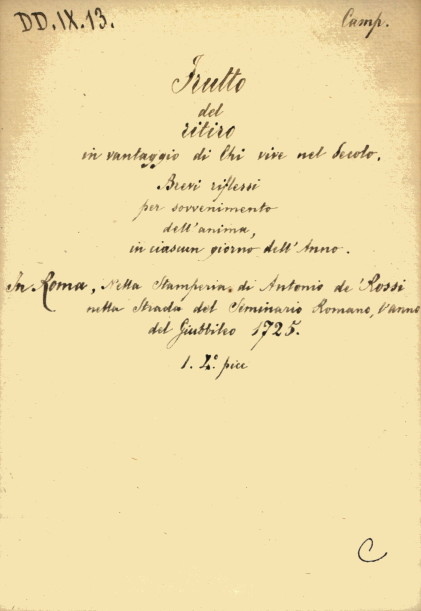 DD.IX.13. Camp.
Frutto
del
ritiro
in vantaggio di Chi vive nel Secolo.
Brevi riflessi
per sovvenimento
dell'anima,
in ciascun giorno dell'Anno.
In Roma, Nella Stamperia, di Antonio de' Rossi
nella Strada del Seminario Romano, l'anno
del Giubbileo 1725.
1. 4.º picc
C